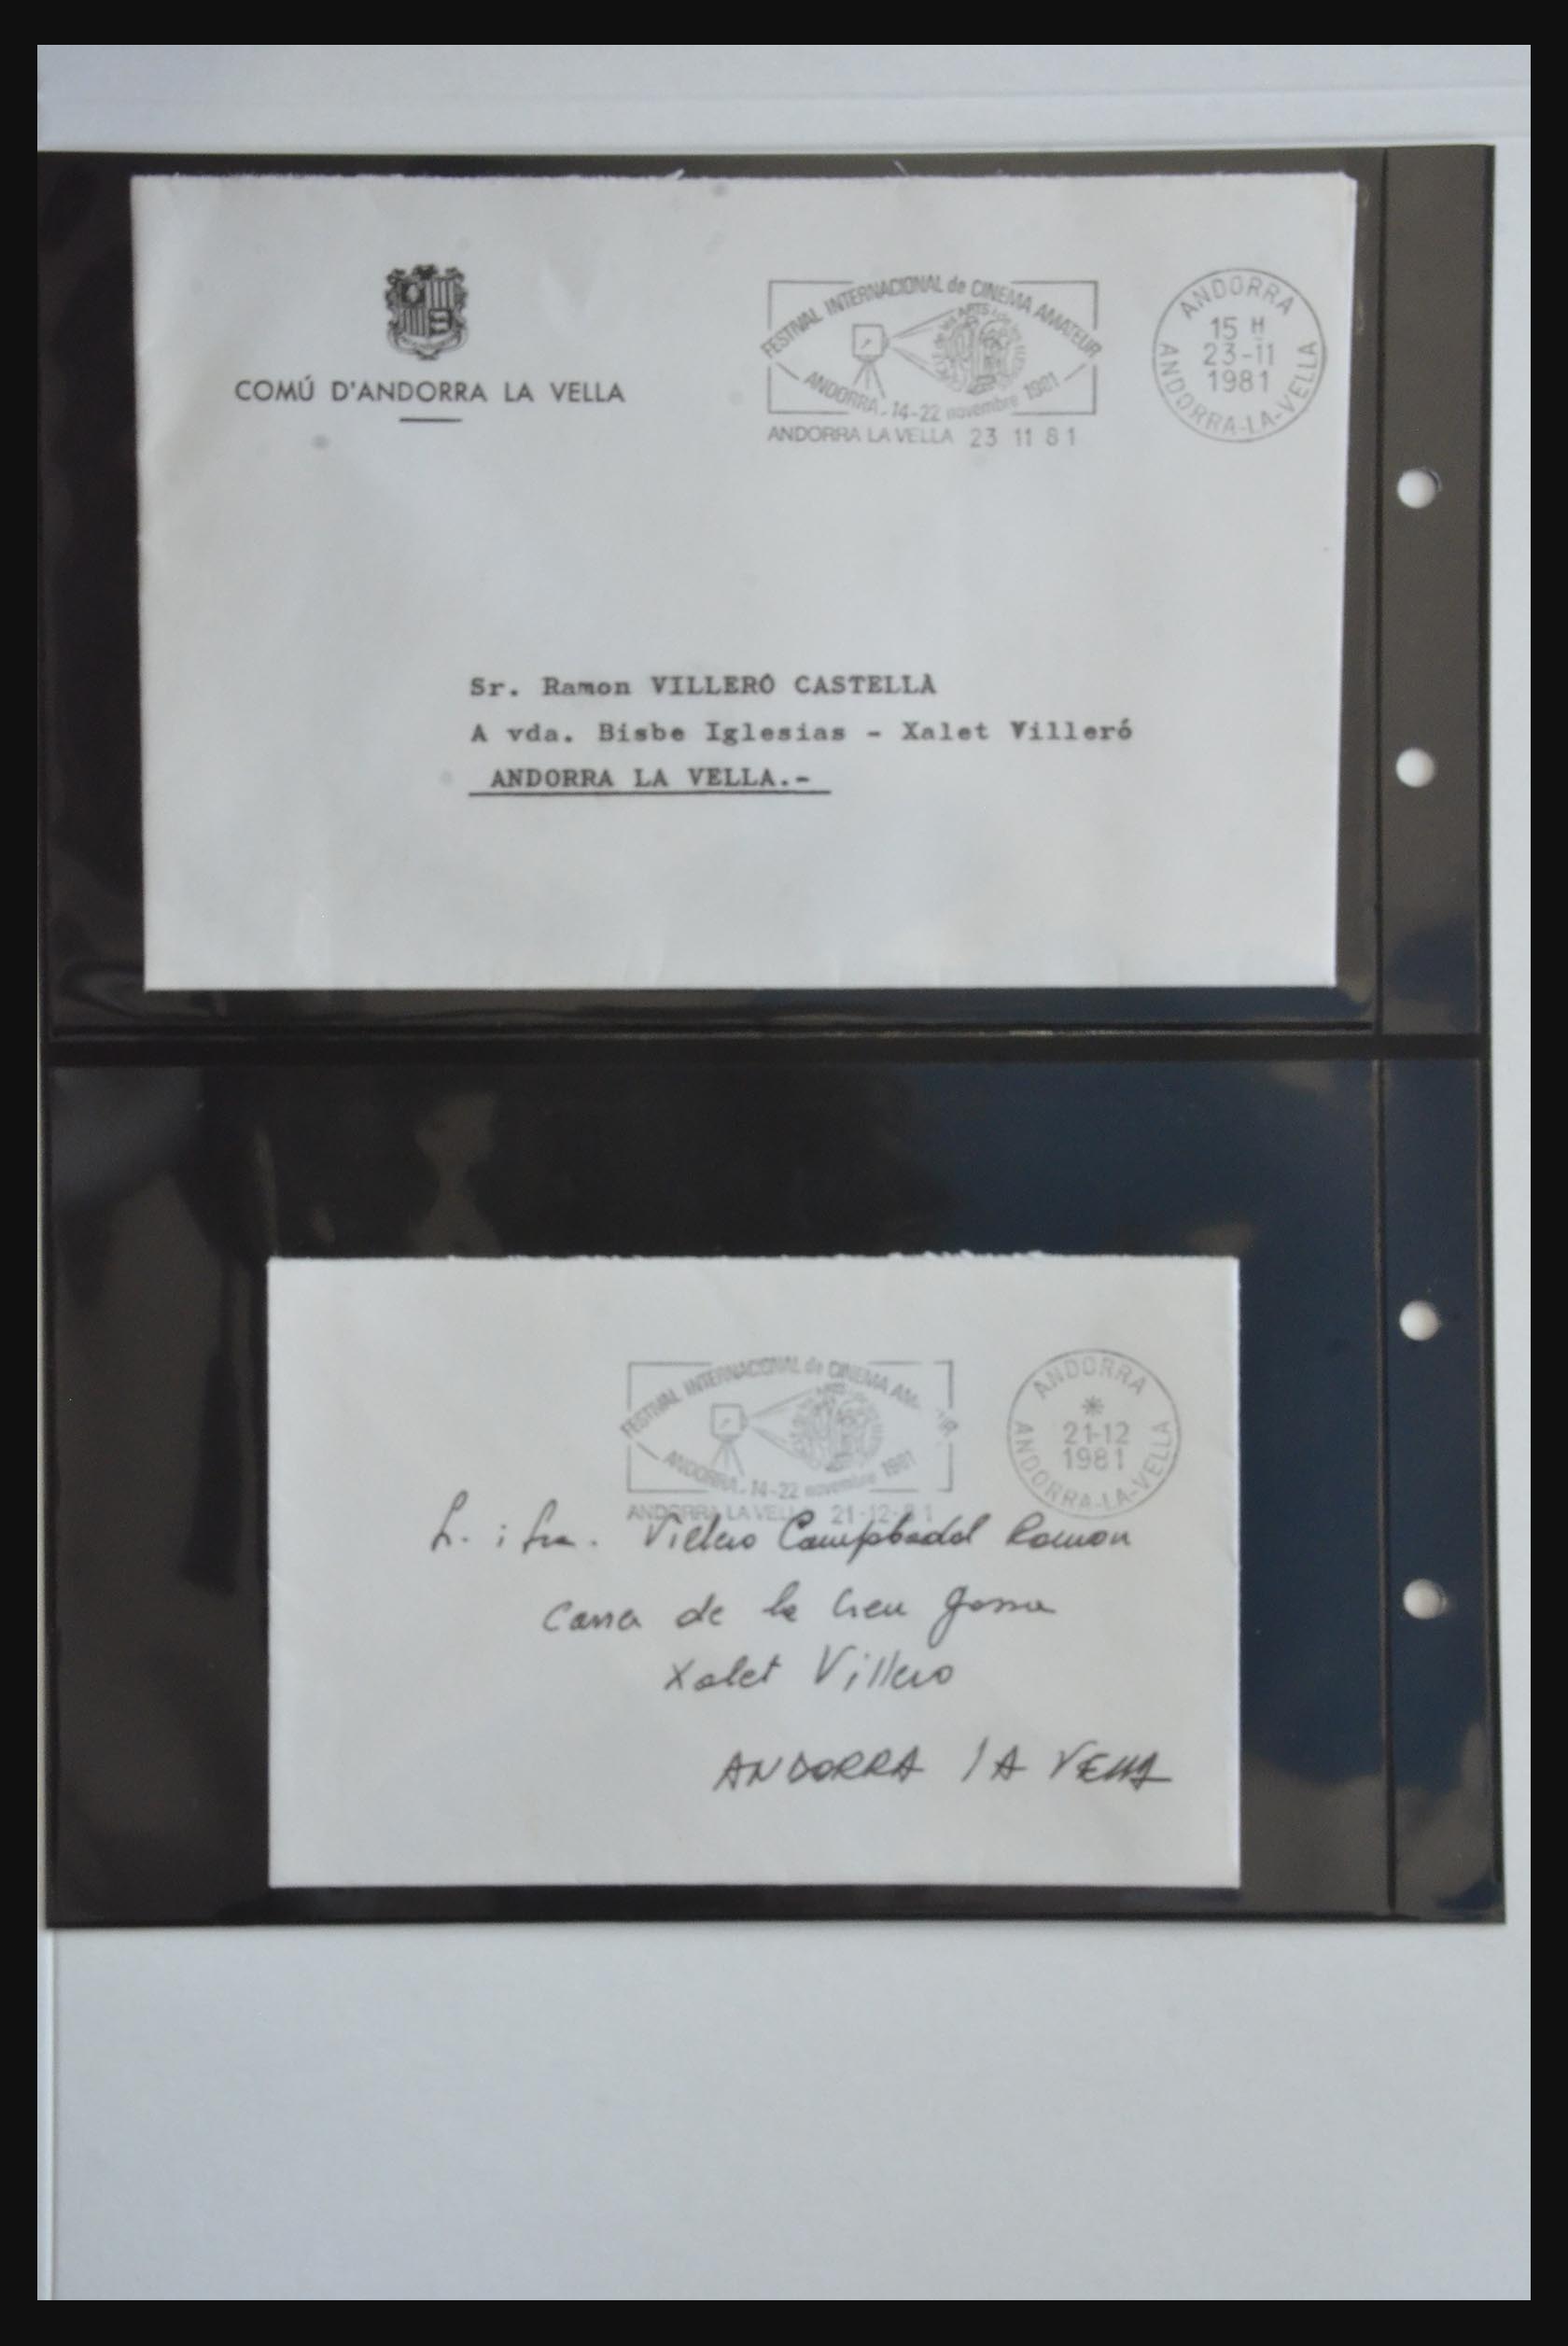 COMÚ D'ANDORRA LA VELLA
FESTIVAL INTERNACIONAL de CINEMA AMATEUR
ANDORRA. 14-22 novembre 1981
ANDORRA LA VELLA 23 11 81
ANDORRA
15 H
23-11
1981
ANDORRA-LA-VELLA
Sr. Ramon VILLERÓ CASTELLÀ
A vda. Bisbe Iglesias - Xalet Villeró
ANDORRA LA VELLA.-
FESTIVAL INTERNACIONAL de CINEMA AM UR
ANDORRA. 14-22 novembre 1981
ANDORRA LA VELL 21-12-81
ANDORRA
*
21-12
1981
ANDORRA-LA-VELLA
Villero Campbadal Ramon
de la Creu
Xalet Villero
ANDORRA LA VELLA